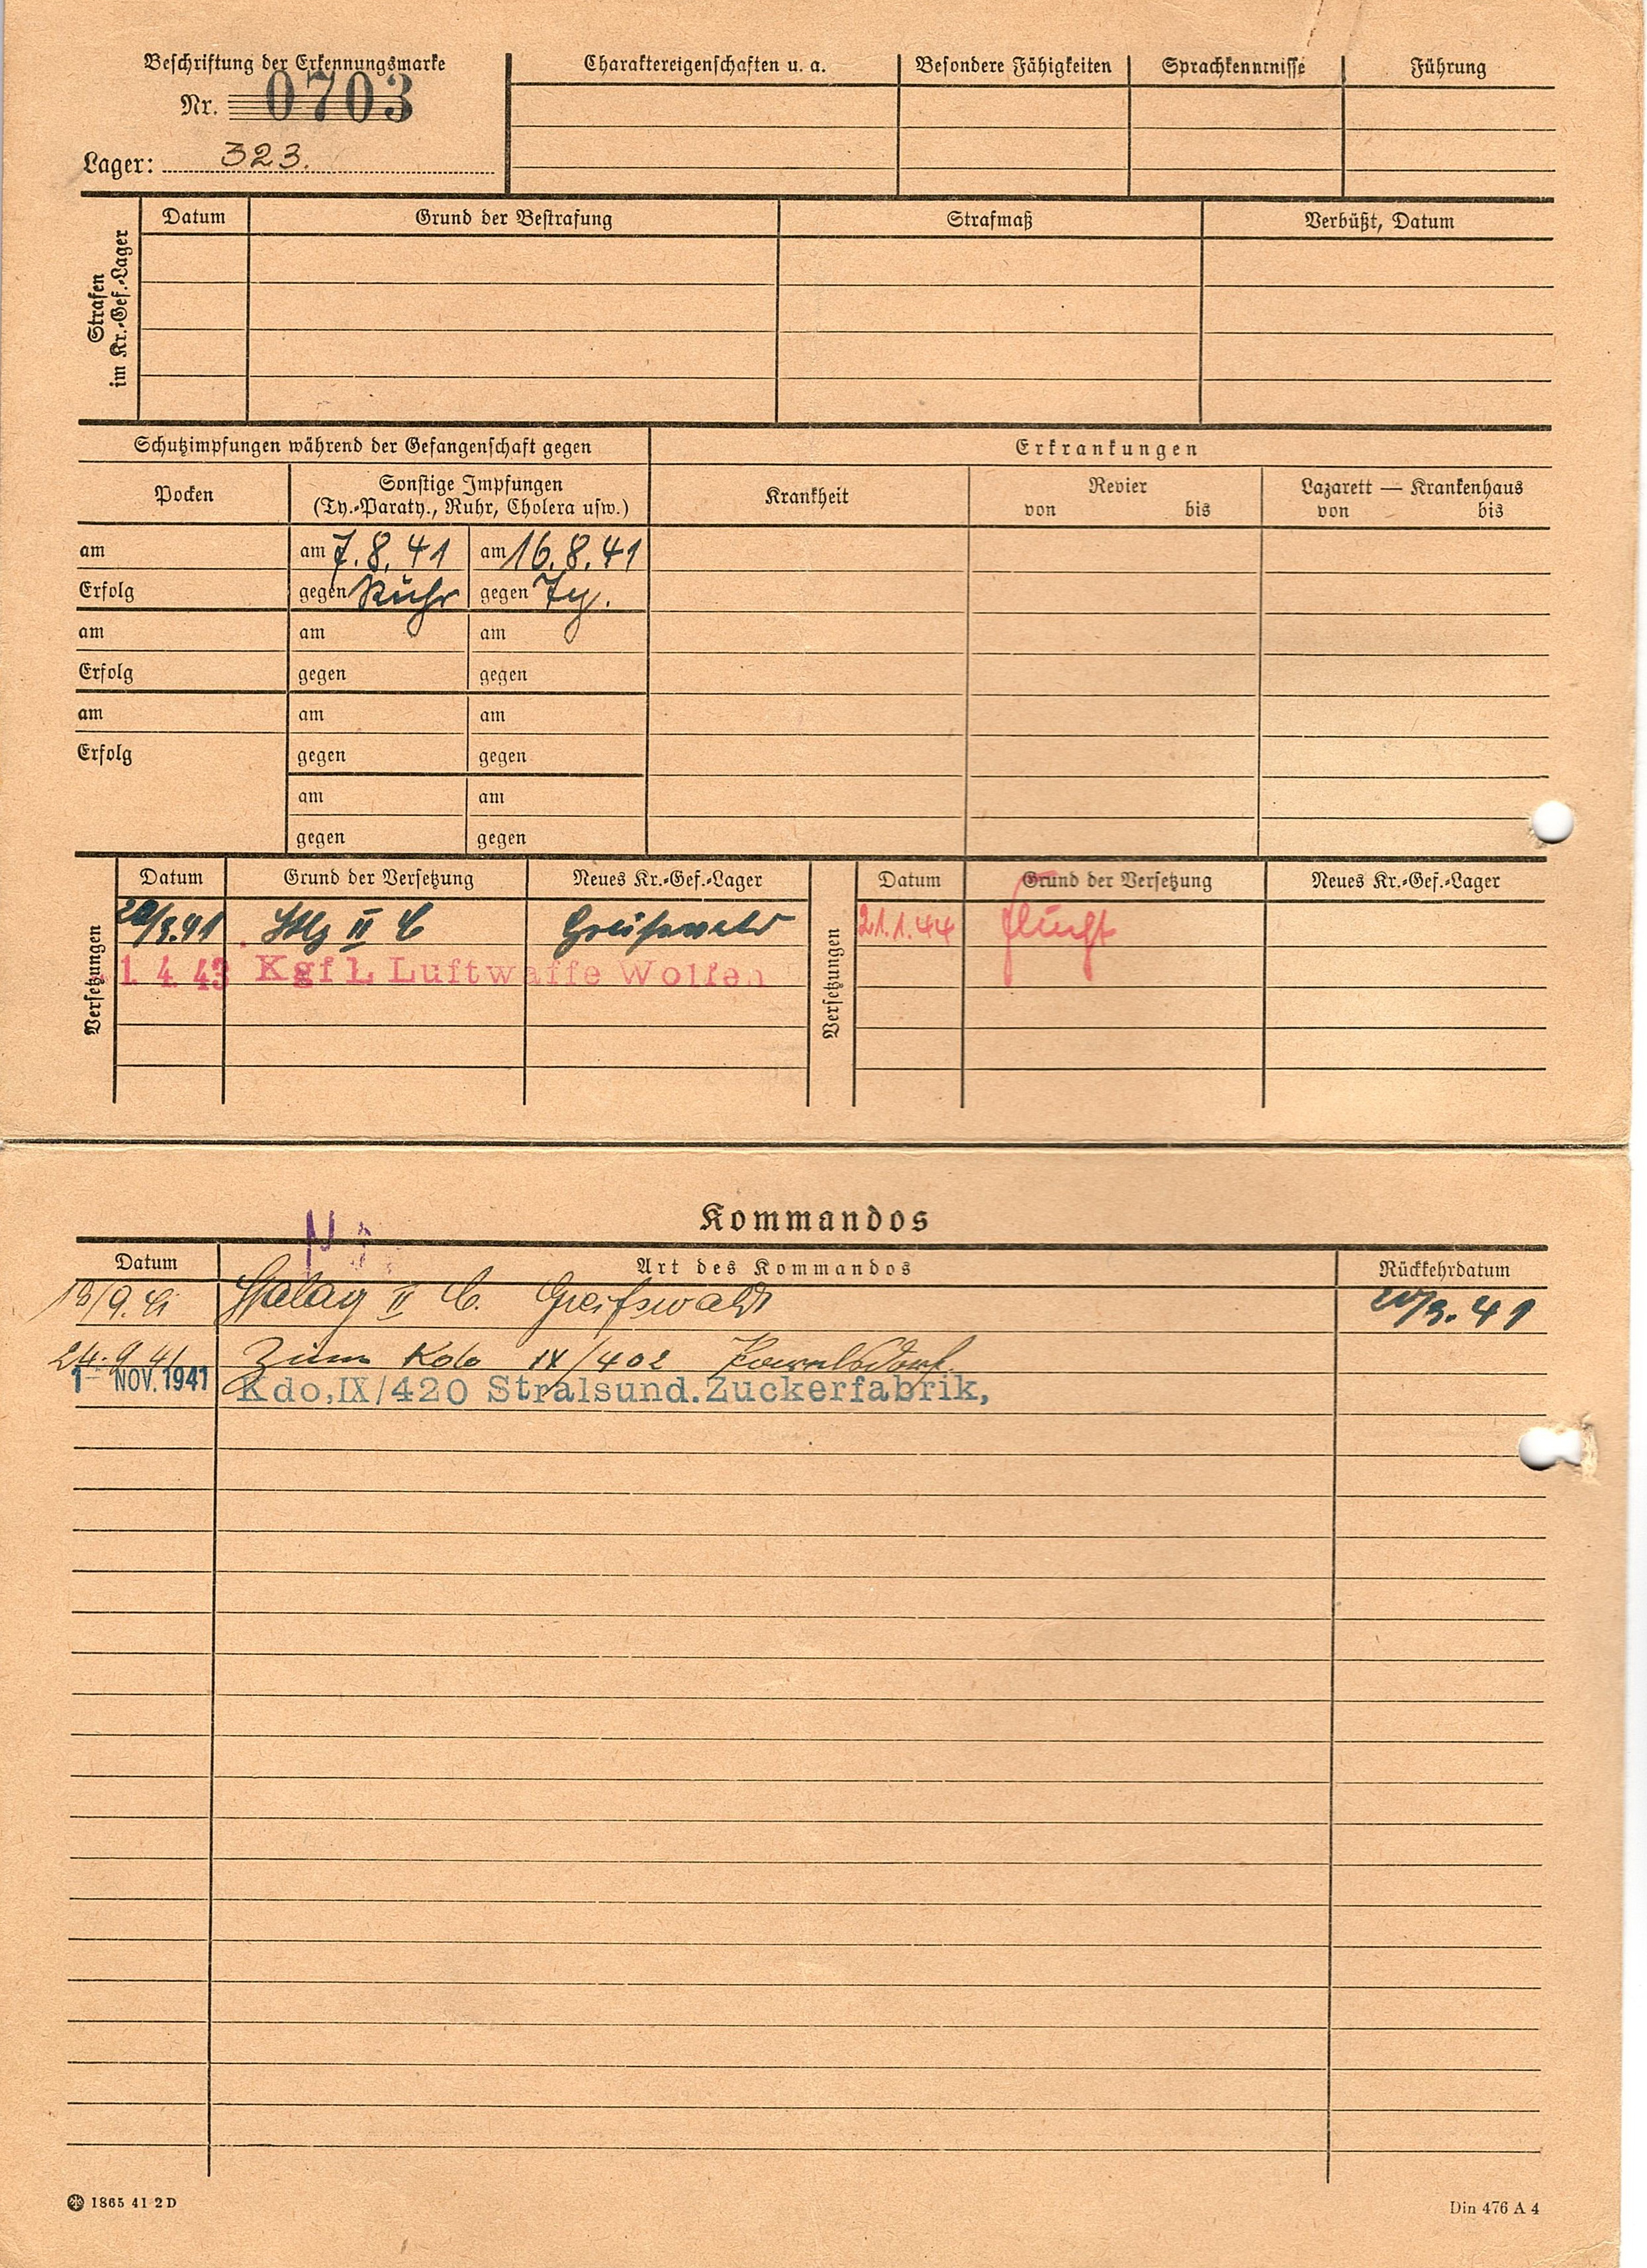 Beschriftung der Erkennungsmarke
Nr. 0703
Lager: 323.
Charaktereigenschaften u. a.
Besondere Fähigkeiten
Sprachkenntnisse
Führung
Strafen im Kr.-Gef.-Lager
Datum
Grund der Bestrafung
Strafmaß
Verbüßt, Datum
Schutzimpfungen während der Gefangenschaft gegen
Erkrankungen
Pocken
Sonstige Impfungen
(Ty.-Paraty., Ruhr, Cholera usw.)
Krankheit
Revier
von bis
Lazarett — Krankenhaus
von bis
am am 7.8.41 am 16.8.41
Erfolg gegen Ruhr gegen Ty.
am am am
Erfolg gegen gegen
am am am
Erfolg gegen gegen
am am
gegen gegen
Versetzungen
Datum Grund der Versetzung Neues Kr.-Gef.-Lager
20/9.41 Stlg II C Greifswald
1. 4. 43 Kgf L Luftwaffe Wolfen
Versetzungen
Datum Grund der Versetzung Neues Kr.-Gef.-Lager
21.1.44 flucht
Kommandos
Datum Art des Kommandos Rückkehrdatum
18/9.41 Stalag II C. Greifswald 20/9.41
24.9.41 Zum Kdo IX/402
1- NOV. 1941 Kdo,IX/420 Stralsund.Zuckerfabrik,
1865 41 2 D
Din 476 A 4